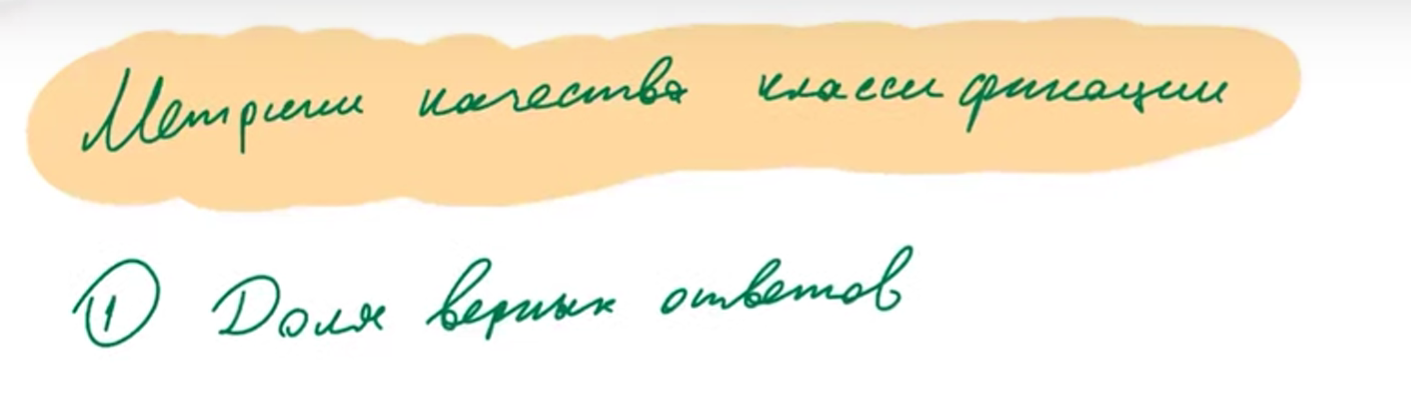 Метрики качества классификации
① Доля верных ответов